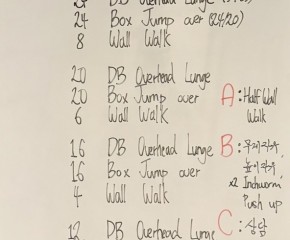 24 DB Overhead Lunge
24 Box Jump over (24/20)
8 Wall Walk
20 DB Overhead Lunge
20 Box Jump over
6 Wall Walk
A: Half Wall
Walk
16 DB Overhead Lunge
16 Box Jump over
4 Wall Walk
B: 무게낮춰,
높이낮춰,
x2 Inchworm,
Push up
12 DB Overhead Lunge
C: 상담